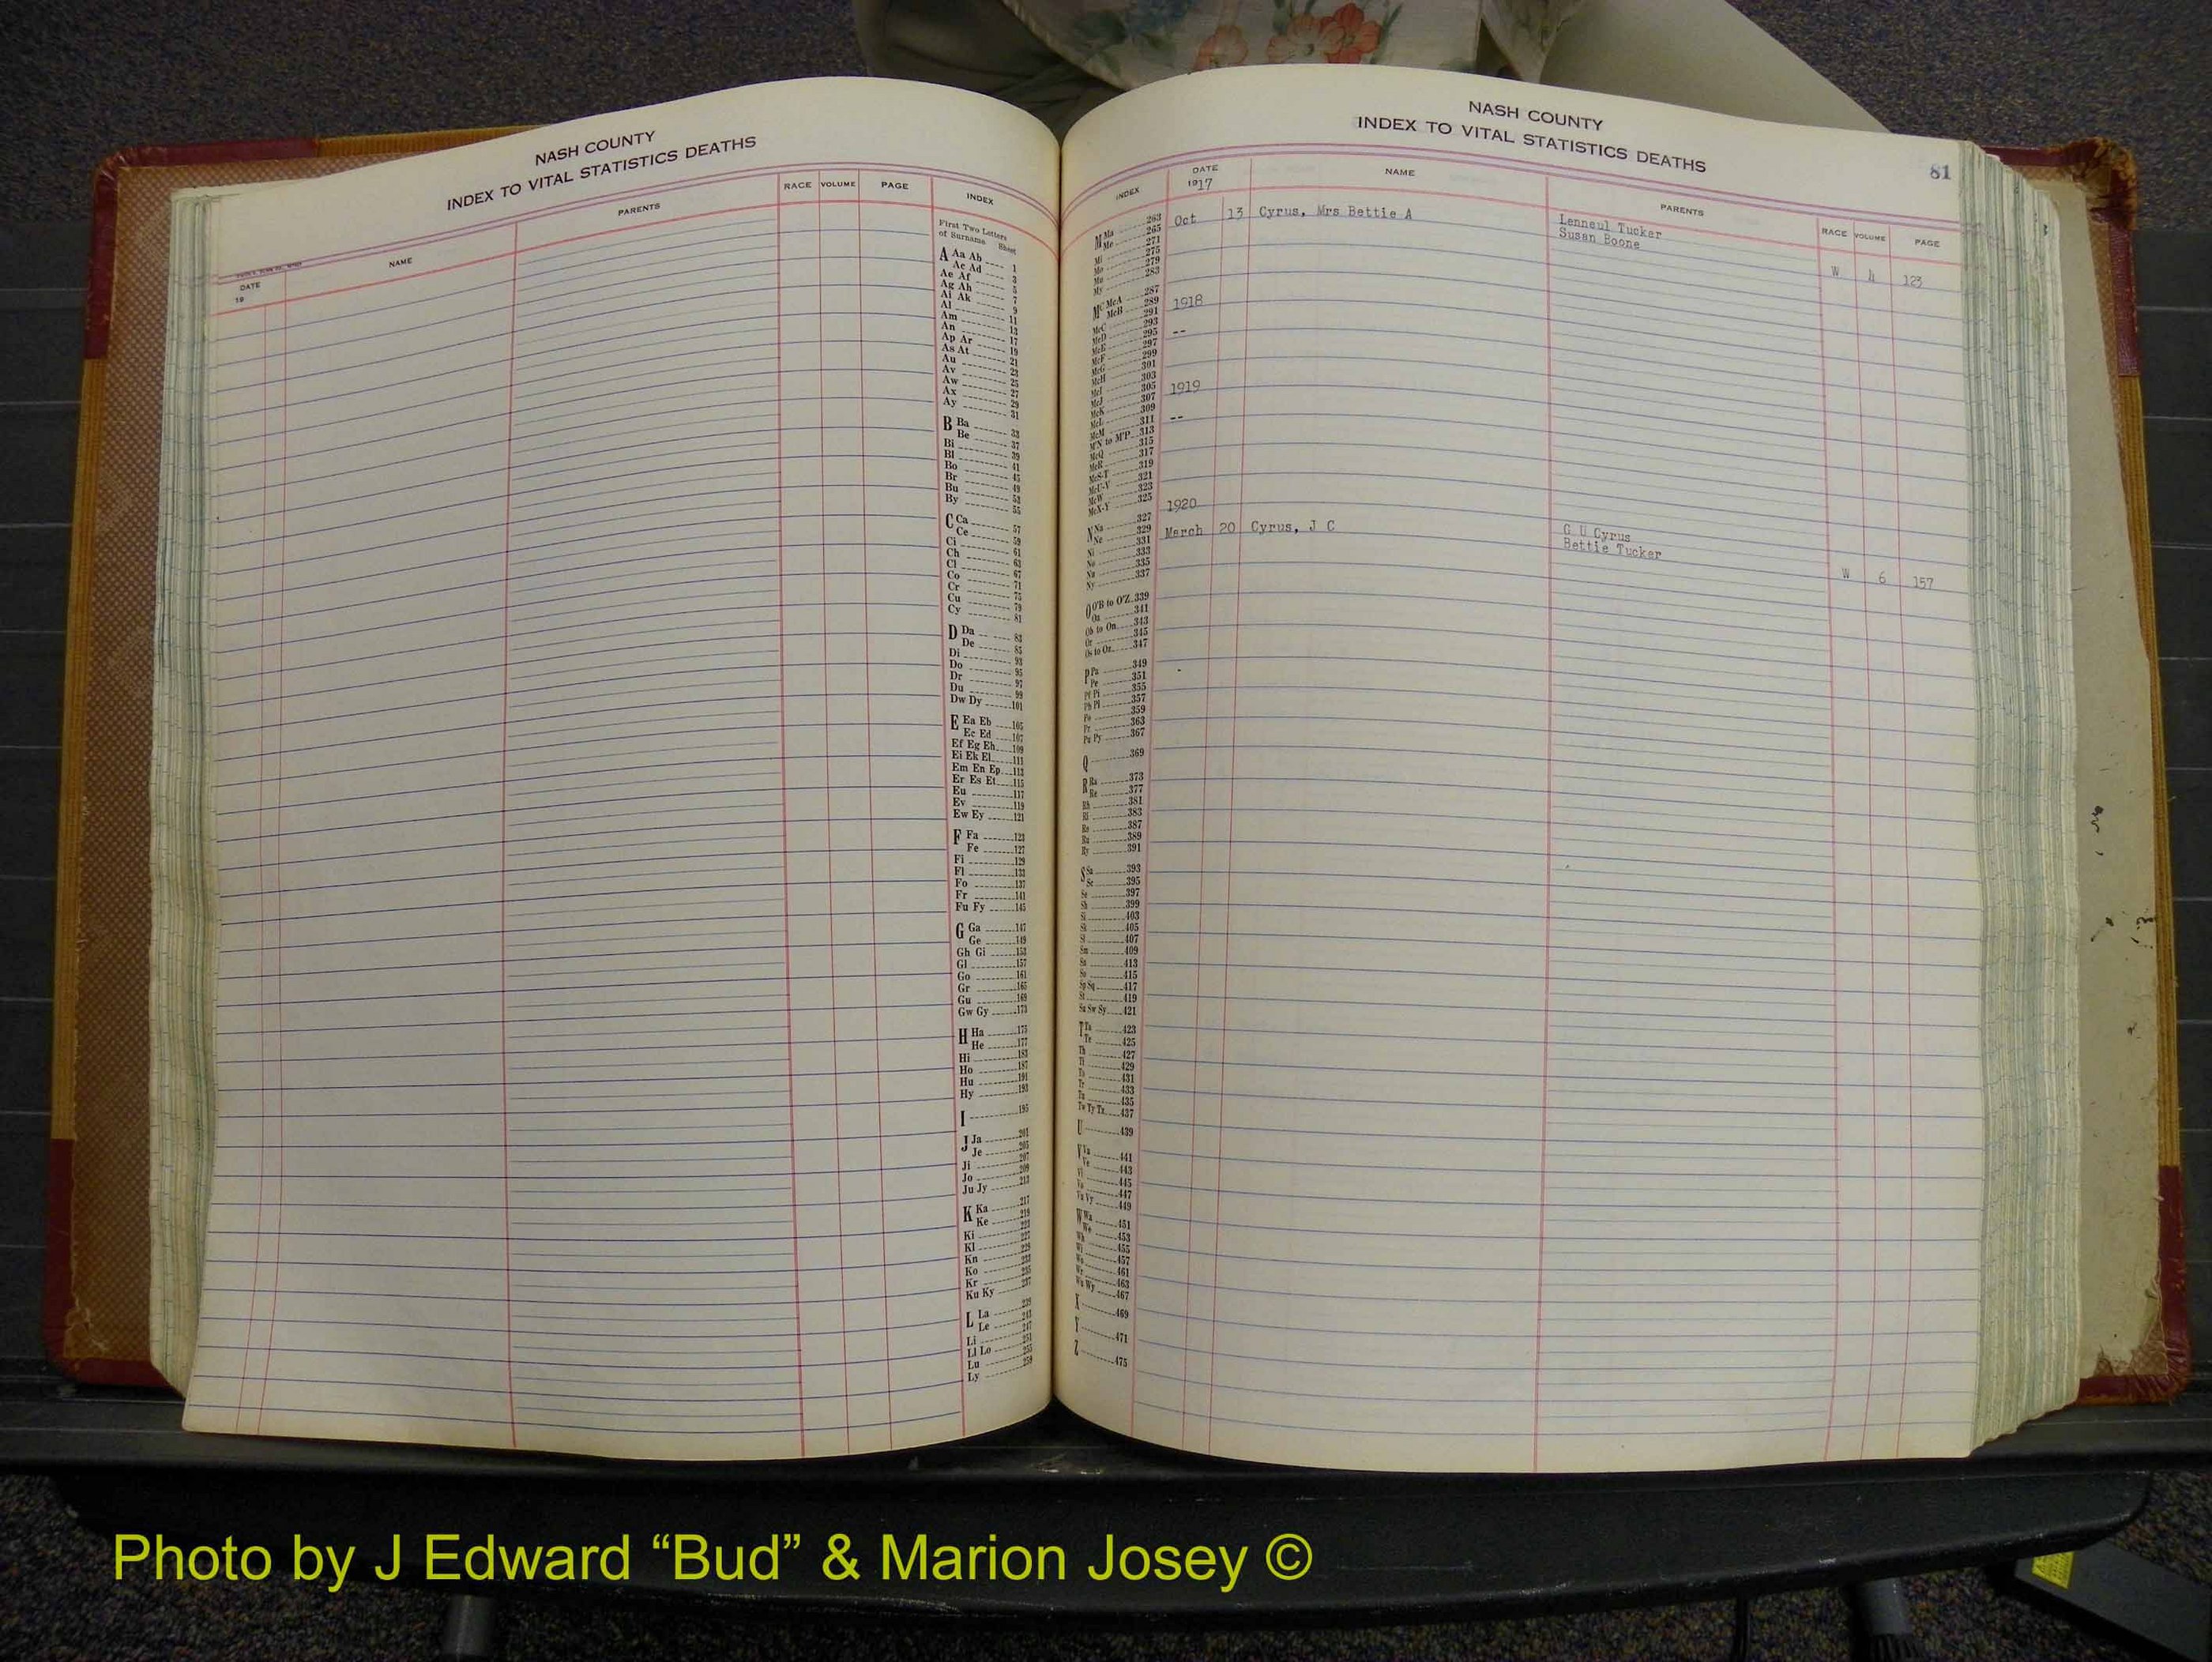 NASH COUNTY
INDEX TO VITAL STATISTICS DEATHS
DATE
19
NAME
PARENTS
RACE
VOLUME
PAGE
INDEX
First Two Letters
of Surname Sheet
A Aa Ab 1
Ac Ad 3
Ae Af 5
Ag Ah 7
Ai Ak 9
Al 11
Am 13
An 17
Ap Ar 19
As At 21
Au 23
Av 25
Aw 27
Ax 29
Ay 31
B Ba 33
Be 37
Bi 39
Bl 41
Bo 45
Br 49
Bu 53
By 55
C Ca 57
Ce 59
Ci 61
Ch 63
Cl 67
Co 71
Cr 75
Cu 79
Cy 81
D Da 83
De 85
Di 93
Do 95
Dr 97
Du 99
Dw Dy 101
E Ea Eb 105
Ec Ed 107
Ef Eg Eh 109
Ei Ek El 111
Em En Ep 113
Er Es Et 115
Eu 117
Ev 119
Ew Ey 121
F Fa 123
Fe 127
Fi 129
Fl 133
Fo 137
Fr 141
Fu Fy 145
G Ga 147
Ge 149
Gh Gi 153
Gl 157
Go 161
Gr 165
Gu 169
Gw Gy 173
H Ha 175
He 177
Hi 183
Ho 187
Hu 191
Hy 193
I 195
J Ja 201
Je 205
Ji 207
Jo 209
Ju Jy 213
K Ka 217
Ke 219
Ki
Kl
Kn
Ko
Kr 237
Ku Ky
L La 239
Le
Li
Ll Lo
Lu
Ly
NASH COUNTY
INDEX TO VITAL STATISTICS DEATHS
81
INDEX
DATE
1917
NAME
PARENTS
RACE
VOLUME
PAGE
Oct 13 Cyrus, Mrs Bettie A
Lenneul Tucker
Susan Boone
W 4 123
1918
--
1919
--
1920
March 20 Cyrus, J C
G U Cyrus
Bettie Tucker
W 6 157
M Ma 263
Me 265
Mi 271
Mo 275
Mu 279
My 283
Mc McA 287
McB 289
McC 291
McD 293
McE 295
McF 297
McG 299
McH 301
McI 303
McJ 305
McK 307
McL 309
McM 311
M'N to M'P 313
McQ 315
McR 317
McS-T 319
McU-V 321
McW 323
McX-Y 325
N Na 327
Ne 329
Ni 331
No 333
Nu 335
Ny 337
O O'B to O'Z 339
Oa 341
Ob to On 343
Or 345
Os to Oz 347
P Pa 349
Pe 351
Pf Pi 355
Ph Pl 357
Po 359
Pr 363
Pu Py 367
Q 369
R Ra 373
Re 377
Rh 381
Ri 383
Ro 387
Ru 389
Ry 391
S Sa 393
Sc 395
Se 397
Sh 399
Si 403
Sk 405
Sl 407
Sm 409
Sn 413
So 415
Sp Sq 417
St 419
Su Sw Sy 421
T Ta 423
Te 425
Th 427
Ti 429
To 431
Tr 433
Tu 435
Tw Ty Tz 437
U 439
V Va 441
Ve 443
Vi 445
Vo 447
Vu Vy 449
W Wa 451
We 453
Wh 455
Wi 457
Wo 461
Wr 463
Wu Wy 467
X 469
Y 471
Z 475
Photo by J Edward “Bud” & Marion Josey ©